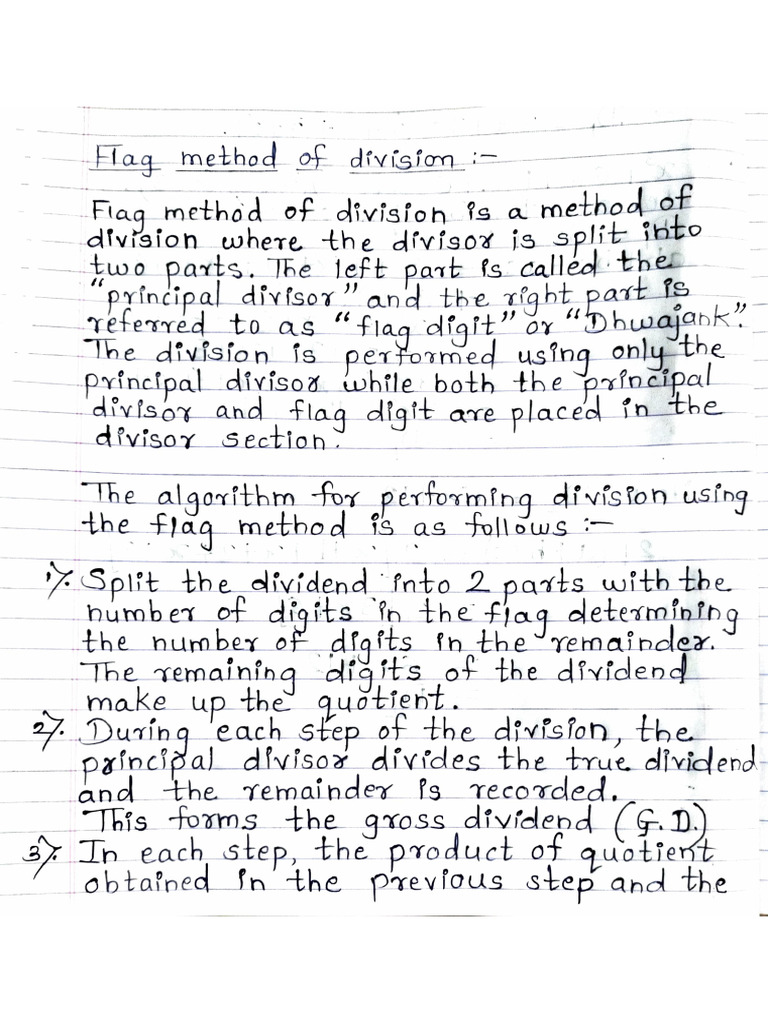 Flag method of division :-
Flag method of division is a method of
division where the divisor is split into
two parts. The left part is called the
"principal divisor" and the right part is
referred to as "flag digit" or "Dhwajank".
The division is performed using only the
principal divisor while both the principal
divisor and flag digit are placed in the
divisor section.
The algorithm for performing division using
the flag method is as follows :-
1). Split the dividend into 2 parts with the
number of digits in the flag determining
the number of digits in the remainder.
The remaining digits of the dividend
make up the quotient.
2). During each step of the division, the
principal divisor divides the true dividend
and the remainder is recorded.
This forms the gross dividend (G.D.)
3). In each step, the product of quotient
obtained in the previous step and the